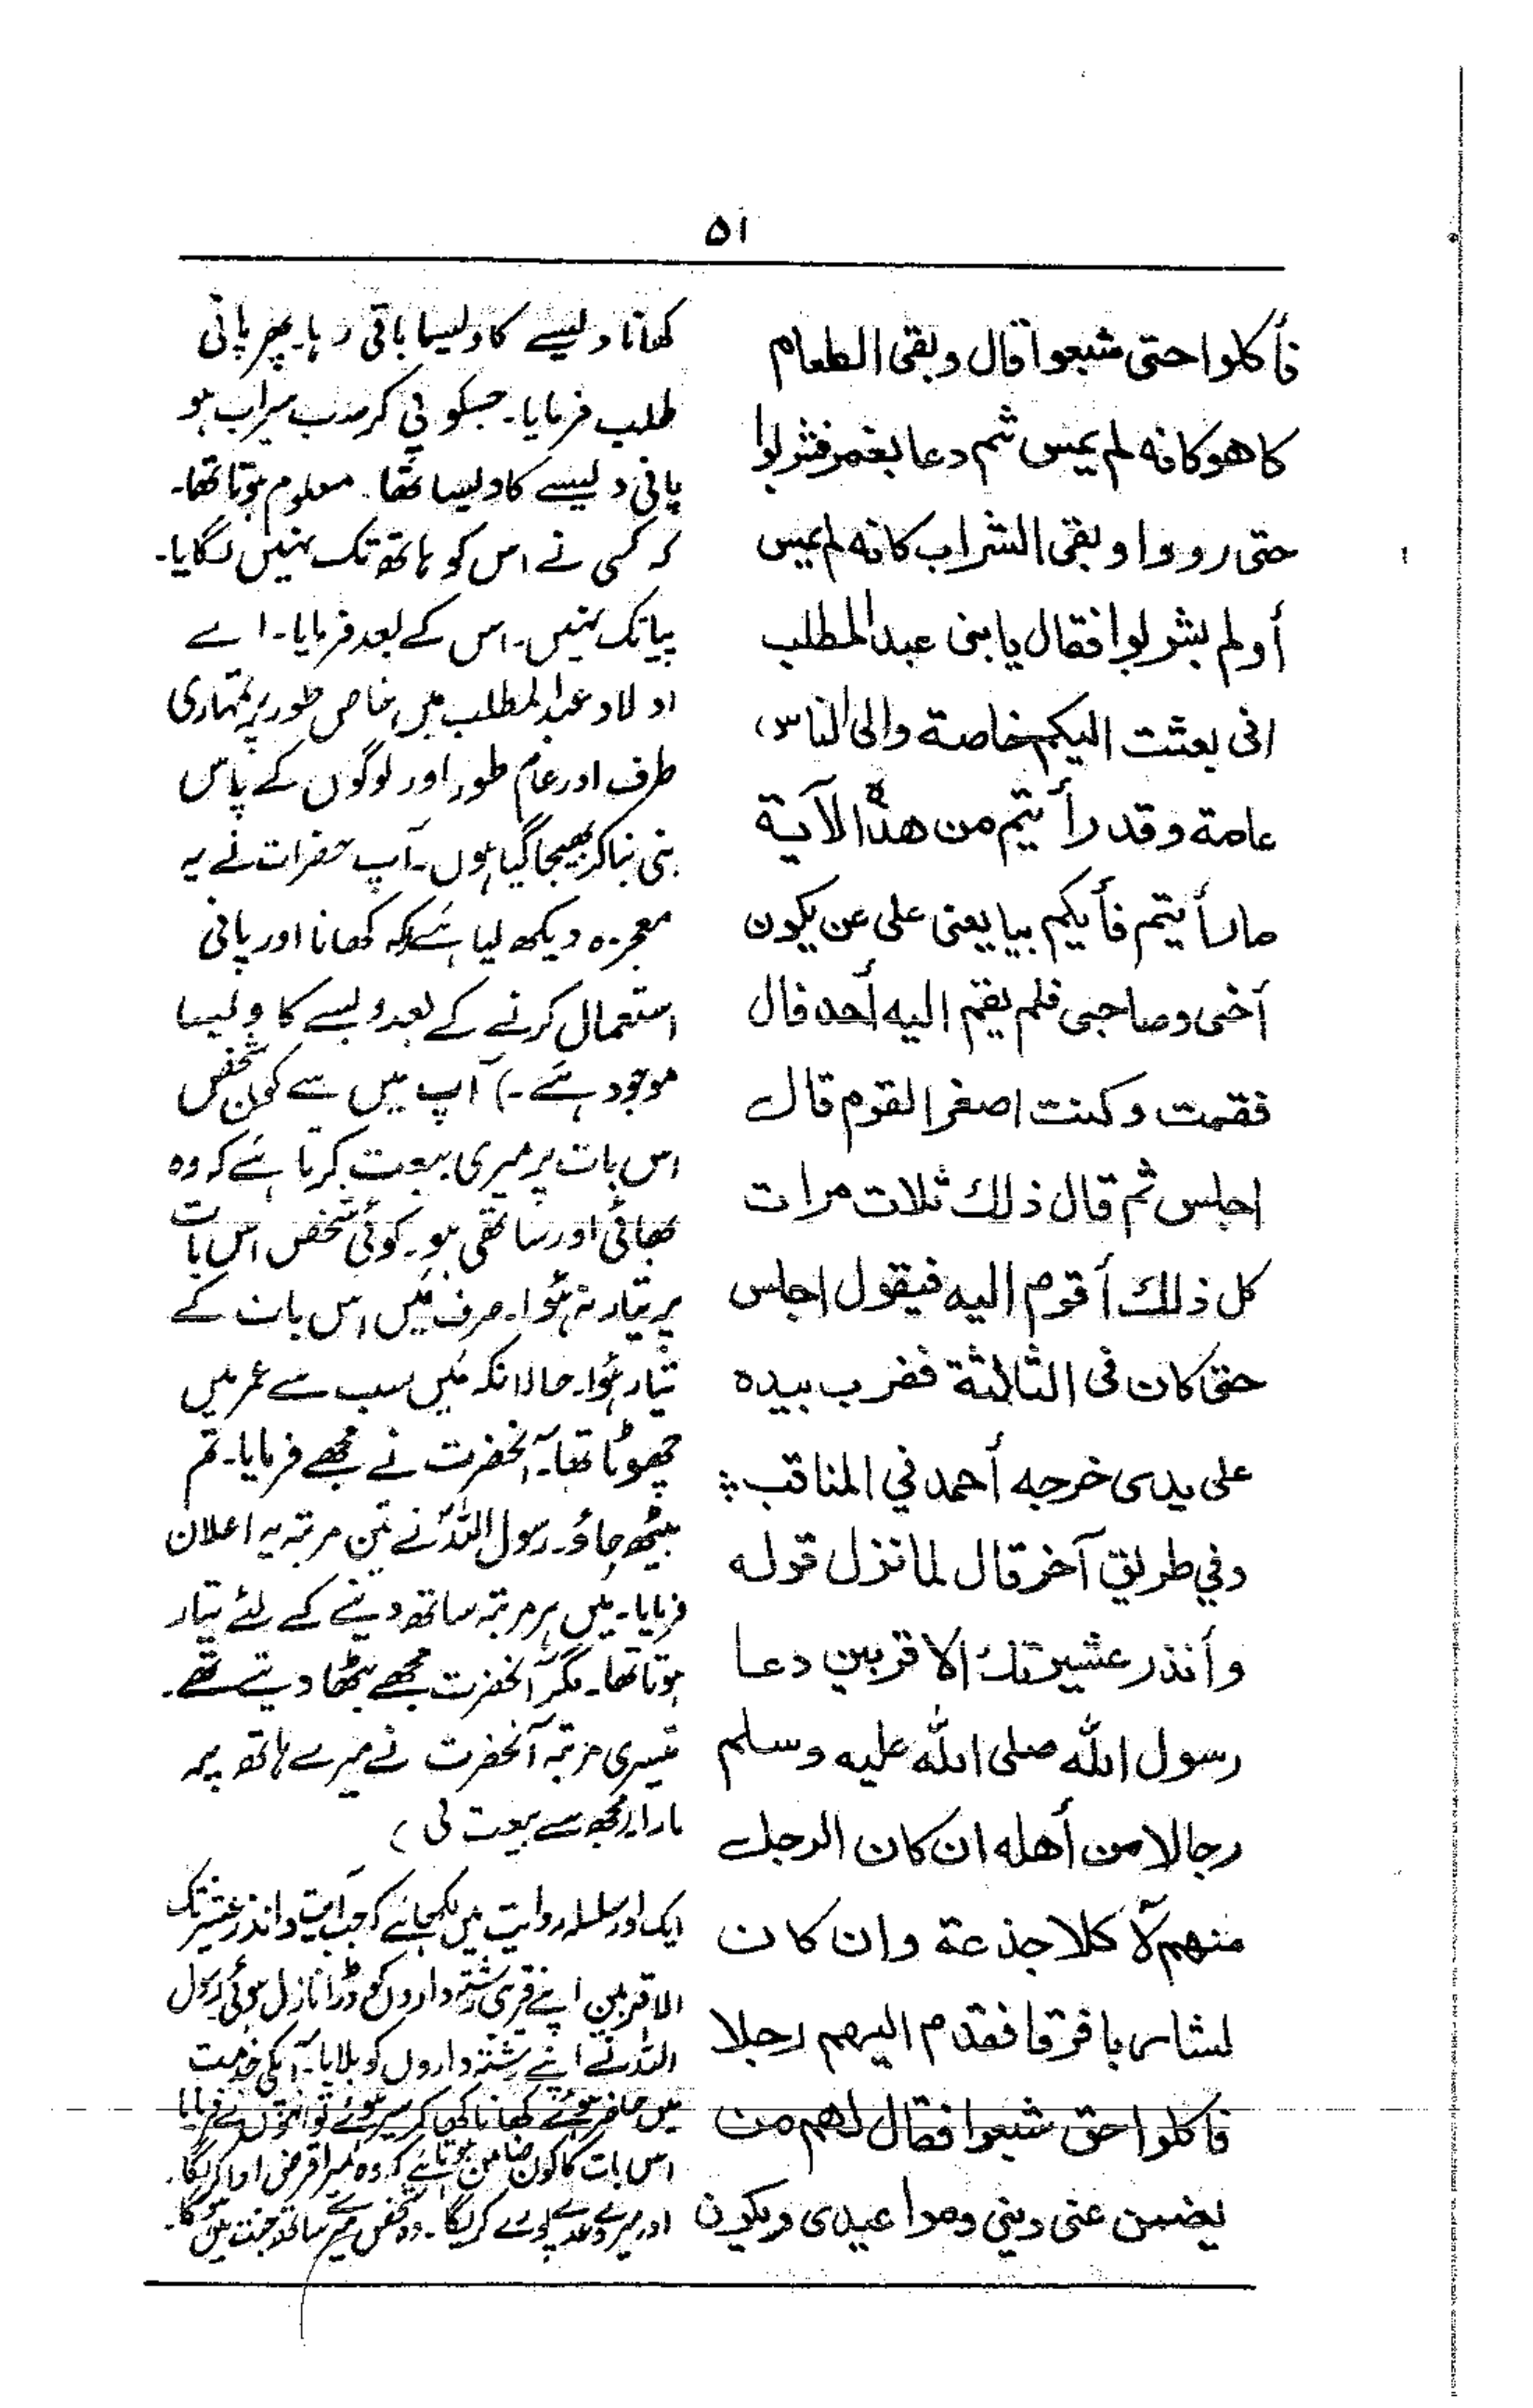 ۵۱
فأكلوا حتى شبعوا قال وبقى الطعام
كا هو كانه لم يمس ثم دعا بغمر فشربوا
حتى رووا وبقى الشراب كانه لم يمس
أو لم يشربوا فقال يا بنى عبد المطلب
انى بعثت اليكم خاصة والى الناس
عامة وقد رأيتم من هذه الآية
ما رأيتم فأيكم يبايعنى على عن يكون
أخى وصاحبى فلم يقم اليه أحد قال
فقمت وكنت اصغر القوم قال
اجلس ثم قال ذلك ثلاث مرات
كل ذلك أقوم اليه فيقول اجلس
حتى كان فى الثالثة فضرب بيده
على يدى خرجه أحمد في المناقب
وفي طريق آخر قال لما نزل قوله
وأنذر عشيرتك الاقربين دعا
رسول الله صلى الله عليه وسلم
رجالا من أهله ان كان الرجل
منهم لآ كلا جذعة وان كان
لشاربا فرقا فقدم اليهم رجلا
فاكلوا حتى شبعوا فقال لهم من
يضمن عنى دينى ومواعيدى ويكون
کھانا ویسے کا ویسا باقی رہا۔ پھر پانی
طلب فرمایا۔ جسکو پی کر سب سیراب ہو
پانی ویسے کا ویسا تھا۔ معلوم ہوتا تھا۔
کہ کسی نے اس کو ہاتھ تک نہیں لگایا۔
پیا تک نہیں۔ اس کے بعد فرمایا۔ اے
اولاد عبد المطلب میں خاص طور پر تمہاری
طرف اور عام طور اور لوگوں کے پاس
نبی بنا کر بھیجا گیا ہوں۔ آپ حضرات نے یہ
معجزہ دیکھ لیا ہے کہ کھانا اور پانی
استعمال کرنے کے بعد ویسے کا ویسا
موجود ہے۔) آپ میں سے کون شخص
اس بات پر میری بیعت کرتا ہے کہ وہ
بھائی اور ساتھی ہو۔ کوئی شخص اس بات
پر تیار نہ ہؤا۔ صرف میں اس بات کے
تیار ہؤا۔ حالانکہ میں سب سے عمر میں
چھوٹا تھا۔ آنحضرت نے مجھے فرمایا۔ تم
بیٹھ جاؤ۔ رسول اللہ نے تین مرتبہ یہ اعلان
فرمایا۔ میں ہر مرتبہ ساتھ دینے کے لئے تیار
ہوتا تھا۔ مگر آنحضرت مجھے بٹھا دیتے تھے۔
تیسری مرتبہ آنحضرت نے میرے ہاتھ پر
مارا (مجھ سے بیعت لی)
ایک اور سلسلہ روایت میں لکھا ہے کہ جب آیت وانذر عشیرتک
الاقربین اپنے قریبی رشتہ داروں کو ڈرا نازل ہوئی رسول
اللہ نے اپنے رشتہ داروں کو بلایا۔ آپکی خدمت
میں حاضر ہوئے کھانا کھا کر سیر ہوئے تو انہوں نے فرمایا
اس بات کا کون ضامن ہوتا ہے کہ وہ میرا قرض ادا کریگا۔
اور میرے وعدے پورے کریگا۔ وہ شخص میرے ساتھ جنت میں ہوگا۔